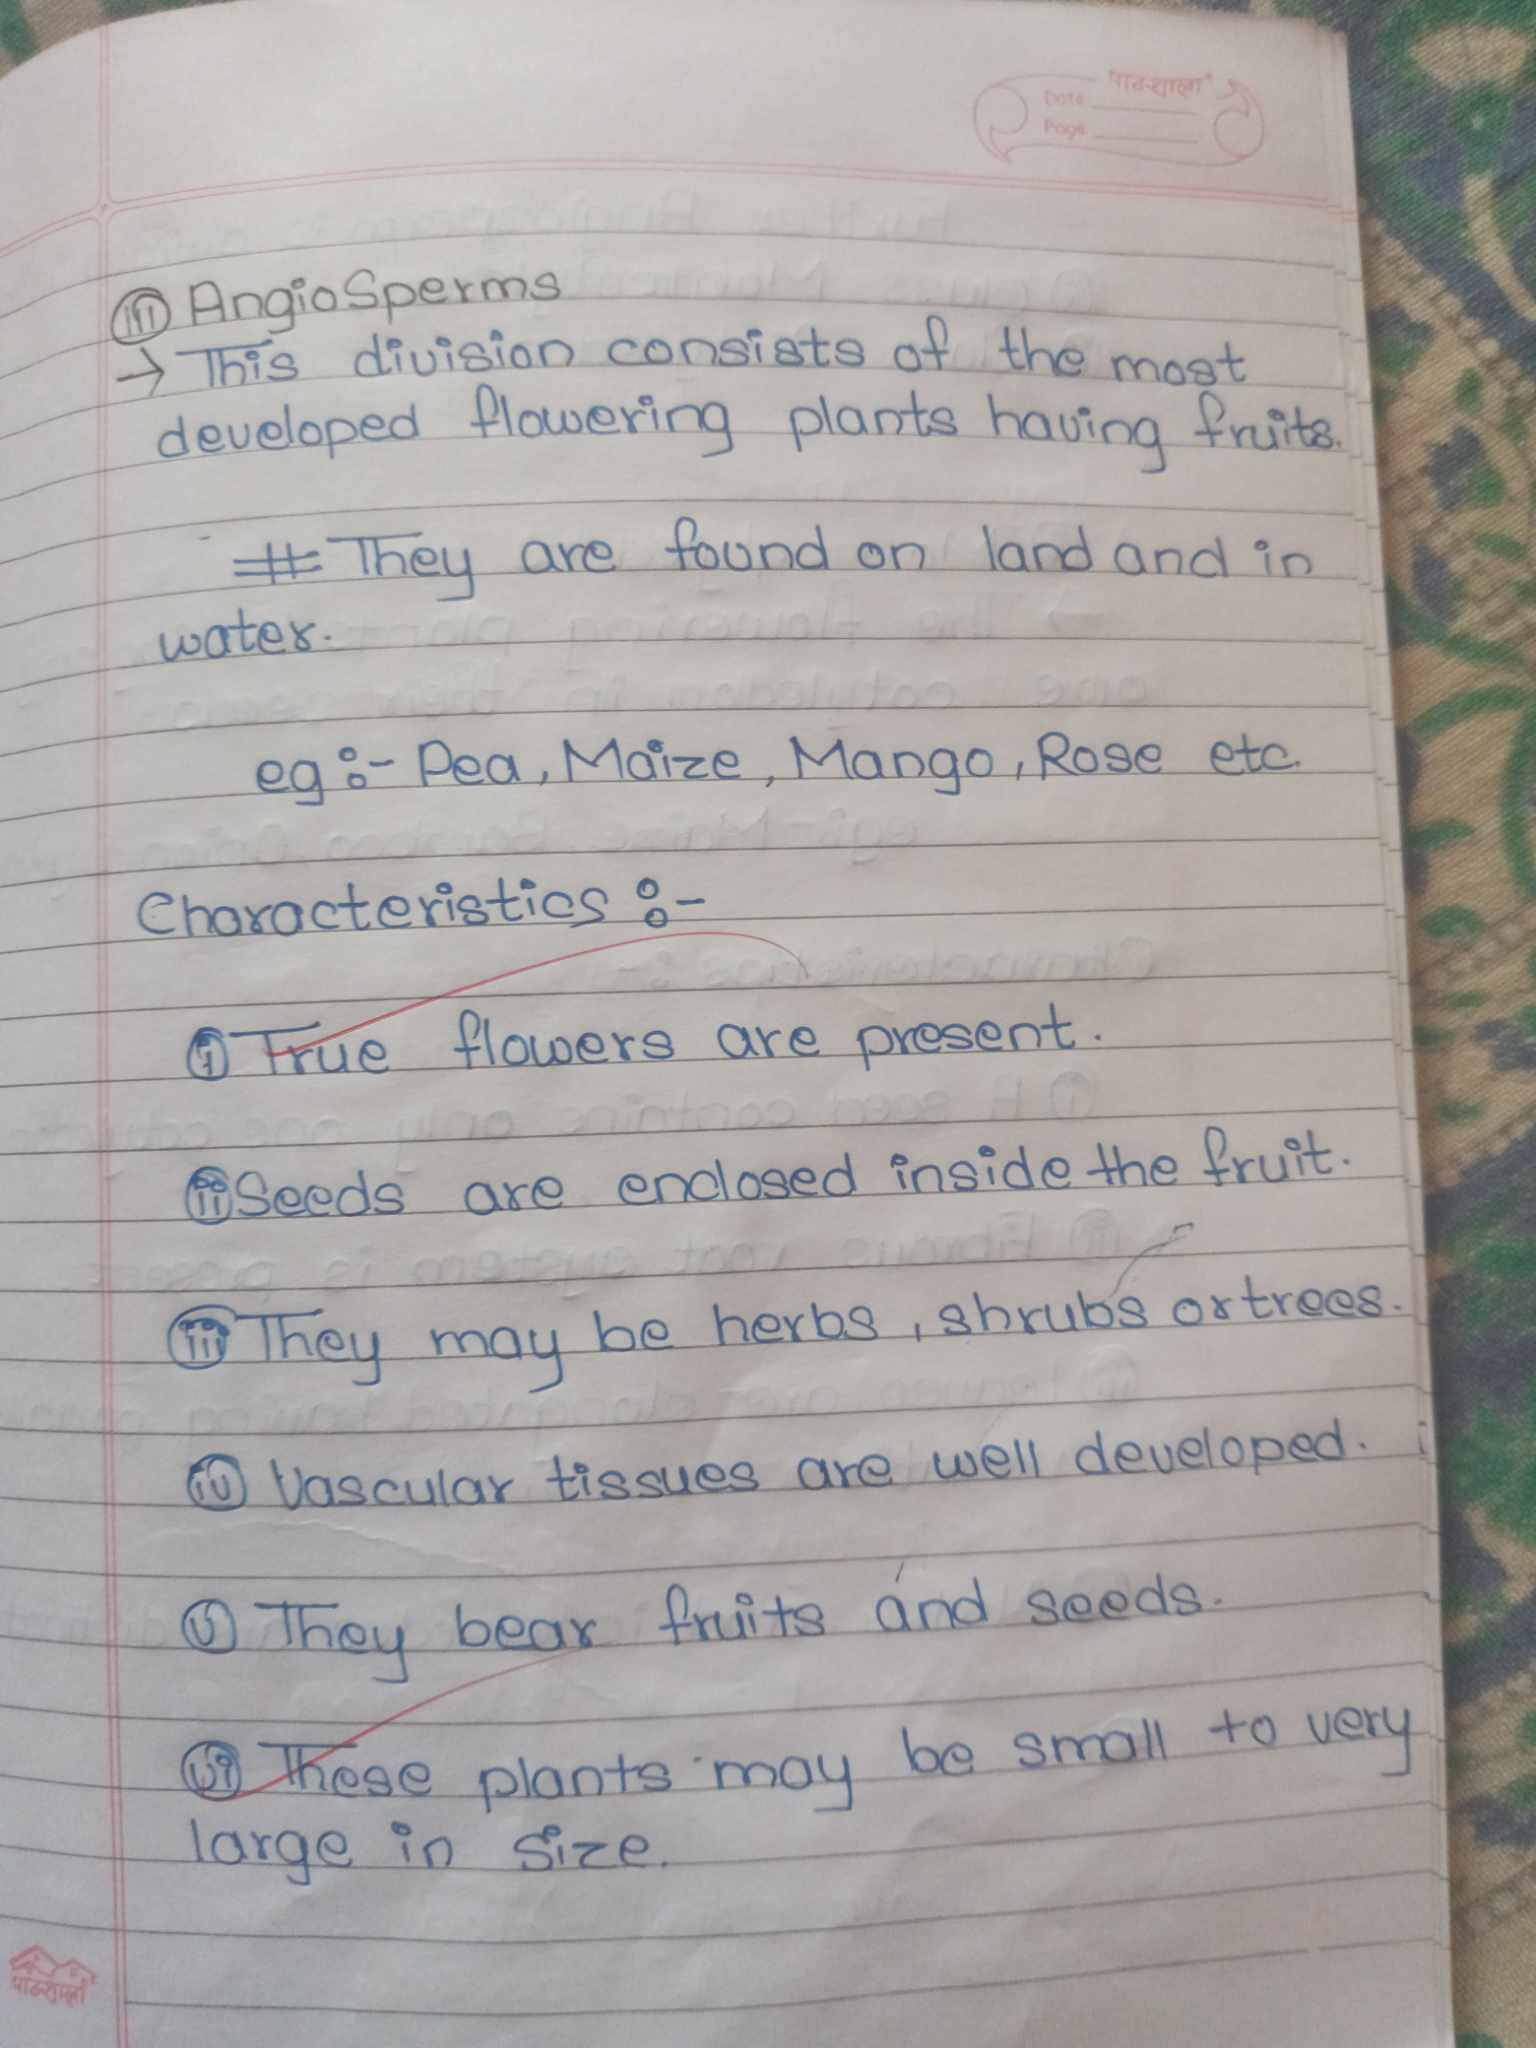 पाठशाला
Date
Page
(iii) AngioSperms
→ This division consists of the most
developed flowering plants having fruits.
# They are found on land and in
water.
eg :- Pea, Maize, Mango, Rose etc.
Characteristics :-
(i) True flowers are present.
(ii) Seeds are enclosed inside the fruit.
(iii) They may be herbs, shrubs or trees.
(iv) Vascular tissues are well developed.
(v) They bear fruits and seeds.
(vi) These plants may be small to very
large in size.
पाठशाला